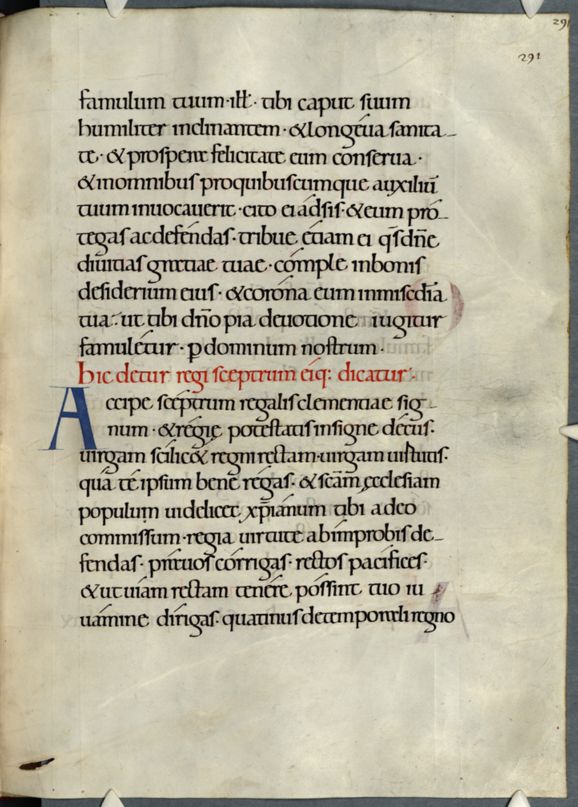 291
291
famulum tuum· ill̄· tibi caput suum
humiliter inclinantem· &longeua sanita-
te· & prospera felicitate eum conserua·
&inomnibus proquibuscumque auxiliū
tuum inuocauerit· cito ei adsis· &eum pro-
tegas ac defendas· tribue etiam ei q̄s dn̄e
diuitias gratiae tuae· comple inbonis
desiderium eius· &corona eum inmisedia
tua· ut tibi dn̄o pia deuotione iugitur
famuletur· p̱ dominum nostrum·
hic detur regi sceptrum eiq: dicatur·
Accipe sceptrum regalis clementiae sig-
num· &regię potestatis insigne decus·
uirgam scilic& regni rectam· uirgam uirtutis·
qua te ipsum bene regas· & scām ęcclesiam
populum uidelicet xp̄ianum tibi a deo
commissum· regia uirtute abimprobis de-
fendas· prauos corrigas· rectos pacifices·
&ut uiam rectam tenere possint tuo iu
uamine dirigas· quatinus detemporali regno